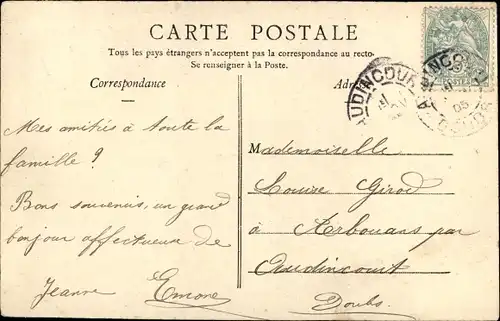 CARTE POSTALE
Tous les pays étrangers n'acceptent pas la correspondance au recto
Se renseigner à la Poste.
Correspondance
Adr
AUDINCOURT
Mes amitiés à toute la
famille ?
Bons souvenirs, un grand
bonjour affectueux de
Jeanne
Mademoiselle
Louise Girod
à Arbouans par
Audincourt
Doubs